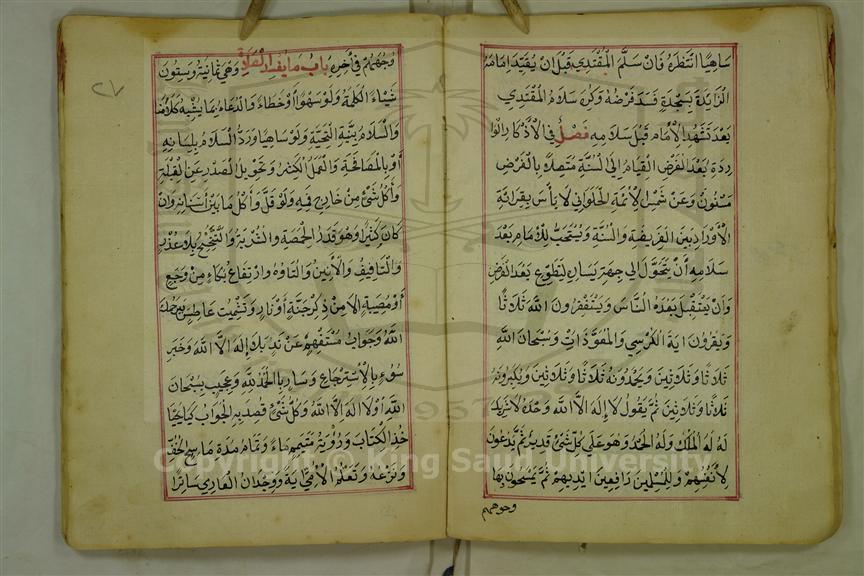 ساهيا انتظره فان سلم المقتدي قبل ان يقيد امامه
الزايدة بسجدة فسد فرضه وكره سلام المقتدي
بعد تشهد الأمام قبل سلامه فصل في الأذكار الوا
ردة بعد الفرض القيام الى السنة متصلا بالفرض
مسنون وعن شمس الأئمة الحلواني لا بأس بقراءة
الأوراد بين الفريضة والسنة ويستحب للأمام بعد
سلامه أن يتحول الى جهة يساره لتطوع بعد الفرض
وان يستقبل بعده الناس ويستغفرون الله ثلاثا
ويقرؤن اية الكرسي والمعوذات وسبحان الله
ثلاثا وثلاثين ويحمدونه ثلاثا وثلاثين ويكبرونه
ثلاثا وثلاثين ثم يقول لا إله الا الله وحده لا شريك
له له الملك وله الحمد وهو على كل شئ قدير ثم يدعون
لأنفسهم وللمسلمين رافعين ايديهم ثم يمسحون بها
وجوههم
٢٧
وجوههم في أخره باب ما يفسد الصلاة وهي ثمانية وستون
شيئا الكلمة ولو سهوا أو خطاء والدعاء بما يشبه كلامنا
والسلام بنية التحية ولو ساهيا ورد السلام بلسانه
أو بالمصافحة والعمل الكثير وتحويل الصدر عن القبلة
وأكل شئ من خارج فيه ولو قل وأكل ما بين أسنانه وان
كان كثيرا وهو قدر الحمصة والشربة والتنحنح بلا عذر
والتافيف والأنين والتاوه وارتفاع بكاء من وجع
أو مصيبة لا من ذكر جنة أو نار وتشميت عاطس بيرحمك
الله وجواب مستفهم عن ند بلا إله الا الله وخبر
سوء بالأسترجاع وسار بالحمد لله وعجيب بسبحان
الله أو لا اله الا الله وكل شئ قصد به الجواب كيا يحيا
خذ الكتاب ورؤية متيمم ماء وتمام مدة ماسح الخف
ونزعه وتعلم الأمي اية ووجدان العاري ساترا
Copyright © King Saud University
1957